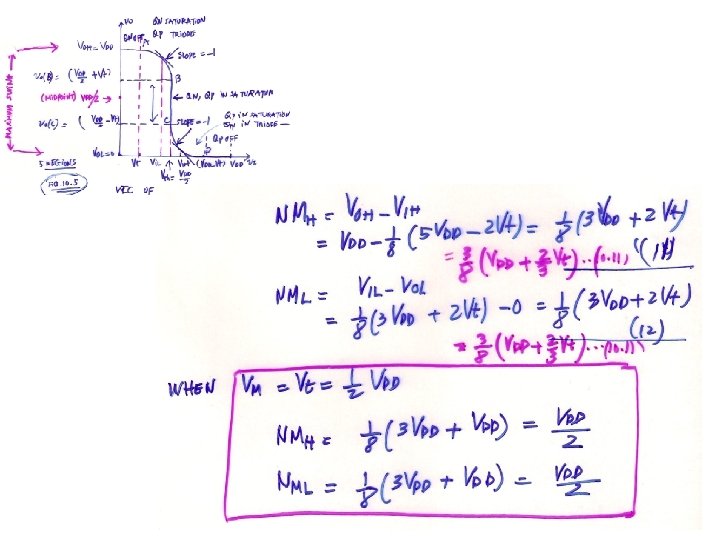 VO
QN SATURATION
QN OFF QP TRIODE
VOH = VDD
SLOPE = -1
Vo(B) = (VDD/2 + Vt)
B
(MIDPOINT) VDD/2
QN, QP IN SATURATION
MAXIMUM SWING
Vo(C) = (VDD/2 - Vt)
C
SLOPE = -1
QP IN SATURATION
QN IN TRIODE
QP OFF
VOL = 0
Vt VIL VIH (VDD-Vt) VDD
VM = VDD/2
5 REGIONS
FIG 10.5
VTC OF
NMH = VOH - VIH
= VDD - 1/8 (5VDD - 2Vt) = 1/8 (3VDD + 2Vt)
= 3/8 (VDD + 2/3 Vt) ... (10.11) (11)
NML = VIL - VOL
= 1/8 (3VDD + 2Vt) - 0 = 1/8 (3VDD + 2Vt)
(12)
= 3/8 (VDD + 2/3 Vt) ...
WHEN VM = Vt = 1/2 VDD
NMH = 1/8 (3VDD + VDD) = VDD/2
NML = 1/8 (3VDD + VDD) = VDD/2